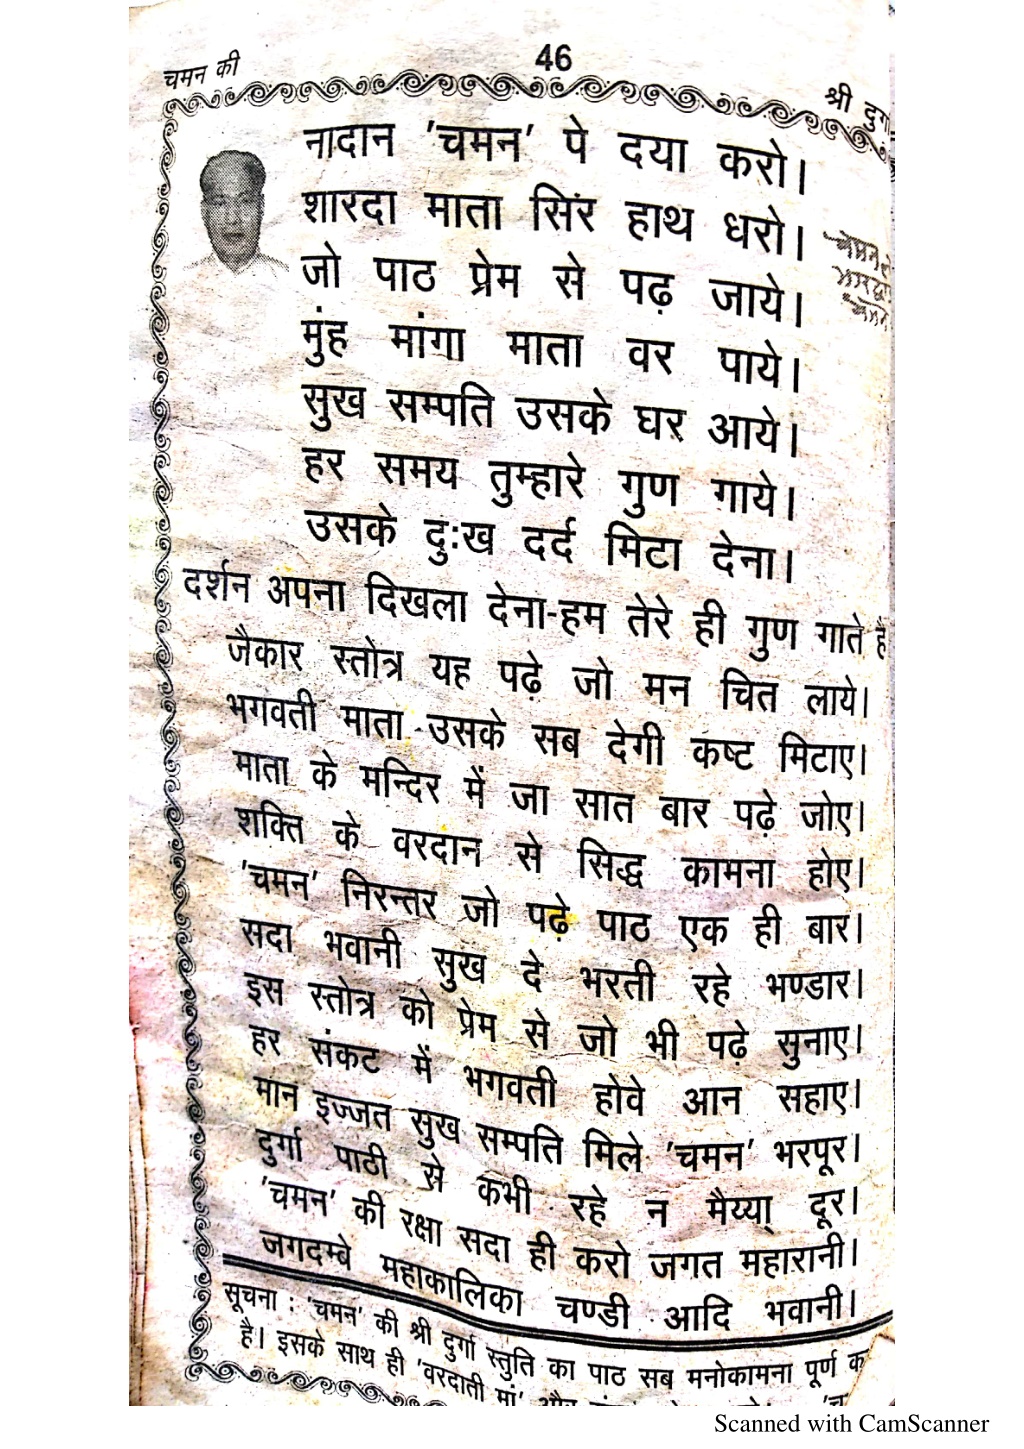 46
चमन की
श्री दुर्गा
नादान 'चमन' पे दया करो।
शारदा माता सिर हाथ धरो।
जो पाठ प्रेम से पढ़ जाये।
मुंह मांगा माता वर पाये।
सुख सम्पति उसके घर आये।
हर समय तुम्हारे गुण गाये।
उसके दुःख दर्द मिटा देना।
दर्शन अपना दिखला देना-हम तेरे ही गुण गाते हैं
जैकार स्तोत्र यह पढ़े जो मन चित लाये।
भगवती माता उसके सब देगी कष्ट मिटाए।
माता के मन्दिर में जा सात बार पढ़े जोए।
शक्ति के वरदान से सिद्ध कामना होए।
'चमन' निरन्तर जो पढ़े पाठ एक ही बार।
सदा भवानी सुख दे भरती रहे भण्डार।
इस स्तोत्र को प्रेम से जो भी पढ़े सुनाए।
हर संकट में भगवती होवे आन सहाए।
मान इज्जत सुख सम्पति मिले 'चमन' भरपूर।
दुर्गा पाठी से कभी रहे न मैय्या दूर।
'चमन' की रक्षा सदा ही करो जगत महारानी।
जगदम्बे महाकालिका चण्डी आदि भवानी।
सूचना : 'चमन' की श्री दुर्गा स्तुति का पाठ सब मनोकामना पूर्ण क
है। इसके साथ ही 'वरदाती मां' और
Scanned with CamScanner